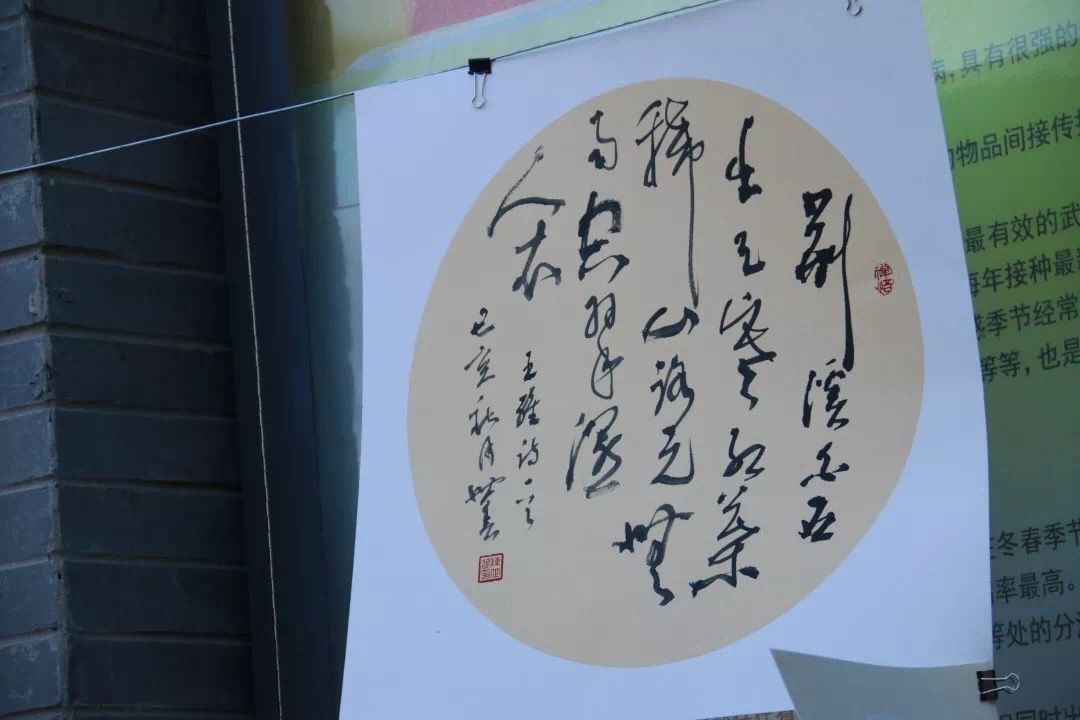 荆溪白石
出天寒紅葉
稀山路元無
雨空翠濕
人衣
王維詩一首
己亥秋月
病,具有很强的
物品间接传
最有效的武
每年接种最
季节经常
等等,也是
冬春季节
率最高。
等处的分